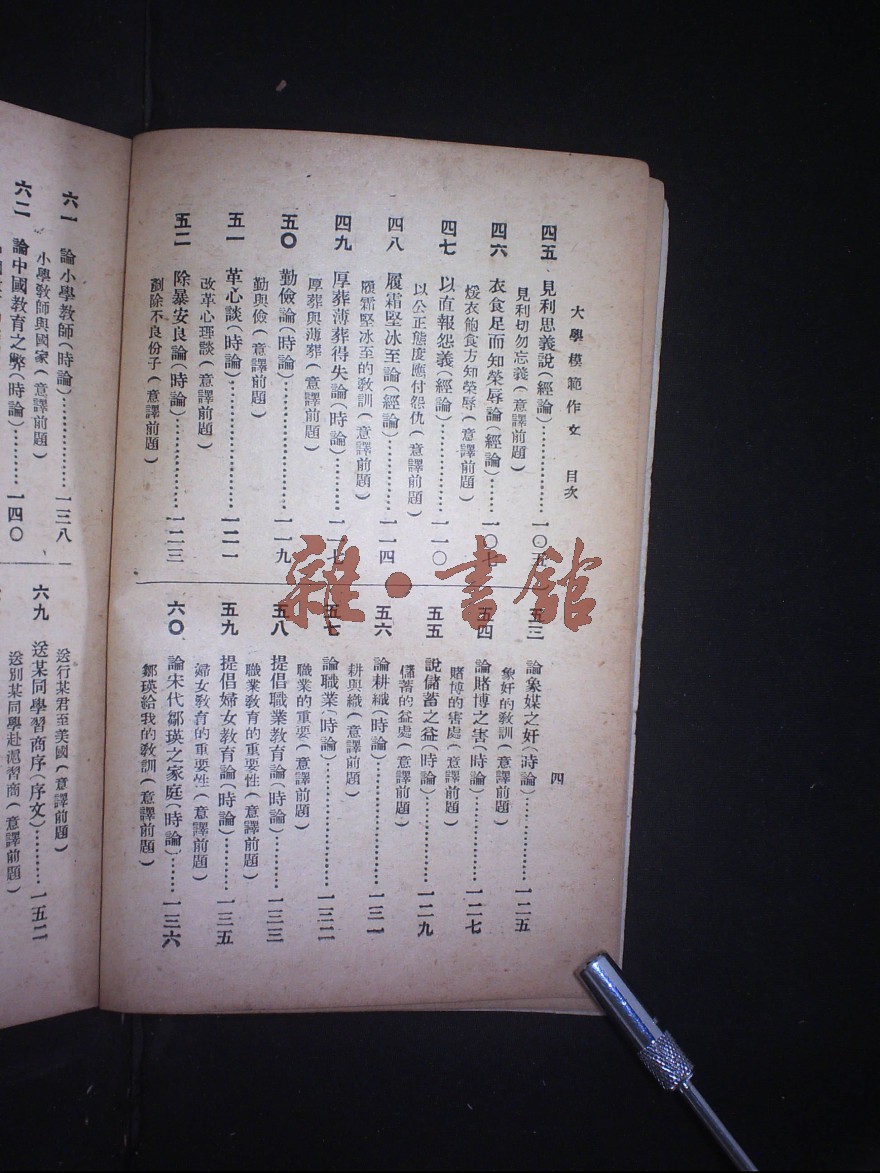 大學模範作文 目次
四
四五 見利思義說(經論)…………一〇五
見利切勿忘義(意譯前題)
四六 衣食足而知榮辱論(經論)……一〇七
煖衣飽食方知榮辱(意譯前題)
四七 以直報怨義(經論)…………一一〇
以公正態度應付怨仇(意譯前題)
四八 履霜堅冰至論(經論)…………一一四
履霜堅冰至的教訓(意譯前題)
四九 厚葬薄葬得失論(時論)………一一七
厚葬與薄葬(意譯前題)
五〇 勤儉論(時論)…………一一九
勤與儉(意譯前題)
五一 革心談(時論)…………一二一
改革心理談(意譯前題)
五二 除暴安良論(時論)…………一二三
剷除不良份子(意譯前題)
五三 論象媒之奸(時論)…………一二五
象奸的教訓(意譯前題)
五四 論賭博之害(時論)…………一二七
賭博的害處(意譯前題)
五五 說儲蓄之益(時論)…………一二九
儲蓄的益處(意譯前題)
五六 論耕織(時論)…………一三一
耕與織(意譯前題)
五七 論職業(時論)…………一三二
職業的重要(意譯前題)
五八 提倡職業教育論(時論)………一三三
職業教育的重要性(意譯前題)
五九 提倡婦女教育論(時論)………一三五
婦女教育的重要性(意譯前題)
六〇 論宋代鄒瑛之家庭(時論)……一三六
鄒瑛給我的教訓(意譯前題)
六一 論小學教師(時論)…………一三八
小學教師與國家(意譯前題)
六二 論中國教育之弊(時論)………一四〇
送行某君至美國(意譯前題)
六九 送某同學習商序(序文)………一五二
送別某同學赴滬習商(意譯前題)
雜·書館